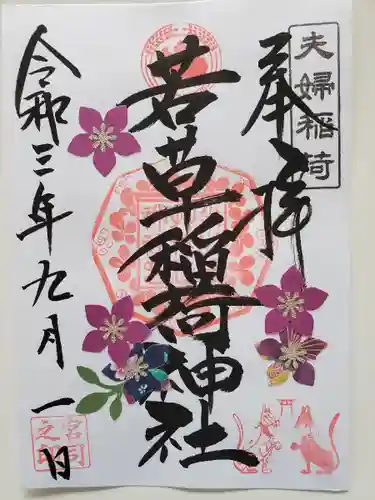 夫婦稲荷
奉拝
若草稲荷神社
令和三年九月一日